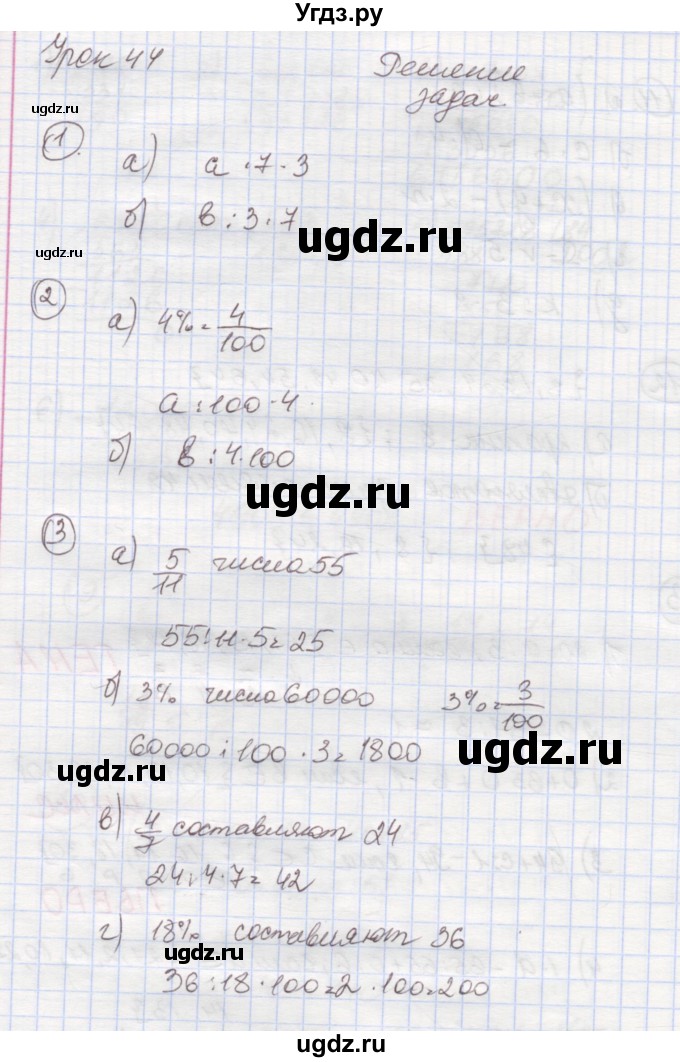 Угдз.ру
Урок 44
Решение
задач.
ugdz.ru
1.
а) а : 7 · 3
б) в : 3 · 7
ugdz.ru
ugdz.ru
2
а) 4% = 4/100
а : 100 · 4.
б) в : 4 · 100
ugdz.ru
3
а) 5/11 числа 55
55 : 11 · 5 = 25
б) 3% числа 60000 3% = 3/100
60000 : 100 · 3 = 1800
ugdz.ru
ugdz.ru
в) 4/7 составляют 24
24 : 4 · 7 = 42
г) 18% составляют 36
ugdz.ru
36 : 18 · 100 = 2 · 100 = 200
Угдз.ру - ugdz.ru